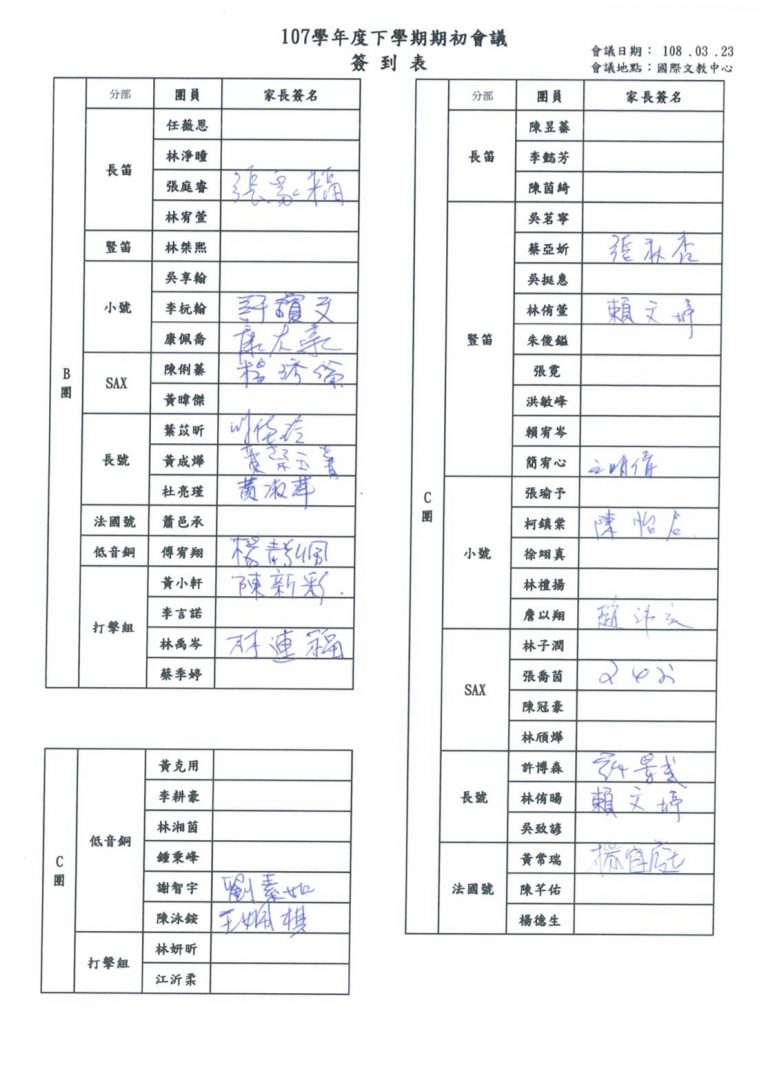 107學年度下學期期初會議
簽到表
會議日期： 108 .03 .23
會議地點：國際文教中心
分部 團員 家長簽名
B團
長笛 任薇恩
林淨瞳
張庭睿
林宥萱
豎笛 林桀熙
小號 吳享翰
李杬翰
康佩喬
SAX 陳俐蓁
黃暐傑
長號 葉苡昕
黃成燁
杜亮瑾 黃淑華
法國號 蕭邑承
低音銅 傅宥翔
打擊組 黃小軒 陳新彩.
李言諾
林禹岑 林連福
蔡季婷
C團
低音銅 黃克用
李耕豪
林湘茵
鍾秉峰
謝智宇 劉素如
陳泳銨 王姵棋
打擊組 林妍昕
江沂柔
分部 團員 家長簽名
C團
長笛 陳昱蓁
李懿芳
陳茵綺
豎笛 吳茗寧
蔡亞妡 張秋杏
吳挺惠
林侑萱 賴文婷
朱俊鎰
張霓
洪敏峰
賴宥岑
簡宥心
小號 張瑜予
柯鎮棠 陳怡君.
徐翊真
林禮揚
詹以翔
SAX 林子潤
張喬茵
陳冠豪
林頎燁
長號 許博森
林侑暘 賴文婷
吳致諺
法國號 黃常瑞
陳芊佑
楊德生